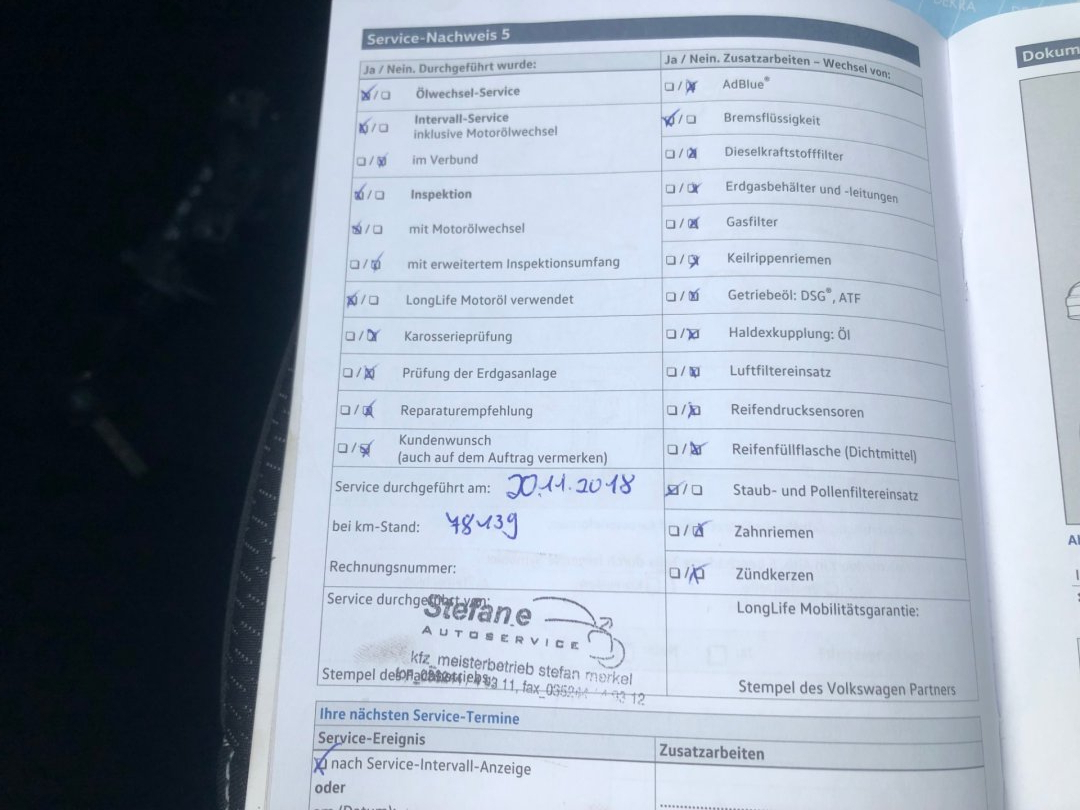 DEKRA
Service-Nachweis 5
Dokum
Ja / Nein. Durchgeführt wurde:
Ölwechsel-Service
Intervall-Service
inklusive Motorölwechsel
im Verbund
Inspektion
mit Motorölwechsel
mit erweitertem Inspektionsumfang
LongLife Motoröl verwendet
Karosserieprüfung
Prüfung der Erdgasanlage
Reparaturempfehlung
Kundenwunsch
(auch auf dem Auftrag vermerken)
Service durchgeführt am: 20.11.2018
bei km-Stand: 78139
Rechnungsnummer:
Service durchgeführt von:
Stefan.e
AUTOSERVICE
kfz_meisterbetrieb stefan merkel
Stempel des Fachbetriebs:
Ja / Nein. Zusatzarbeiten – Wechsel von:
AdBlue®
Bremsflüssigkeit
Dieselkraftstofffilter
Erdgasbehälter und -leitungen
Gasfilter
Keilrippenriemen
Getriebeöl: DSG®, ATF
Haldexkupplung: Öl
Luftfiltereinsatz
Reifendrucksensoren
Reifenfüllflasche (Dichtmittel)
Staub- und Pollenfiltereinsatz
Zahnriemen
Zündkerzen
LongLife Mobilitätsgarantie:
Stempel des Volkswagen Partners
Ihre nächsten Service-Termine
Service-Ereignis
Zusatzarbeiten
nach Service-Intervall-Anzeige
oder